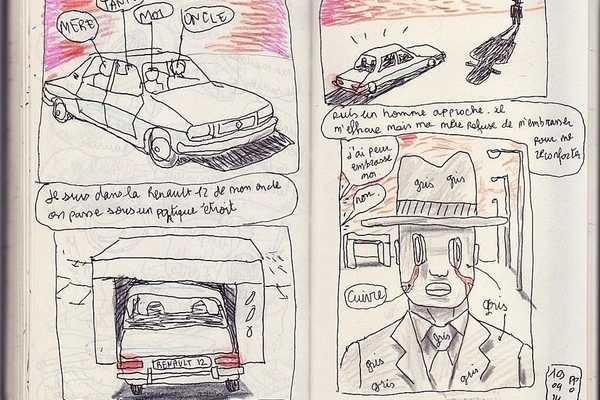 MÈRE
TANTE
MOI
ONCLE
Je suis dans la Renault 12 de mon oncle
on passe sous un portique étroit
RENAULT 12
Puis un homme approche. Il
m'effraie mais ma mère refuse de m'embrasser
pour me
réconforter
j'ai peur
embrasse
moi
non
gris gris
cuivre
gris
gris
gris
gris
gris